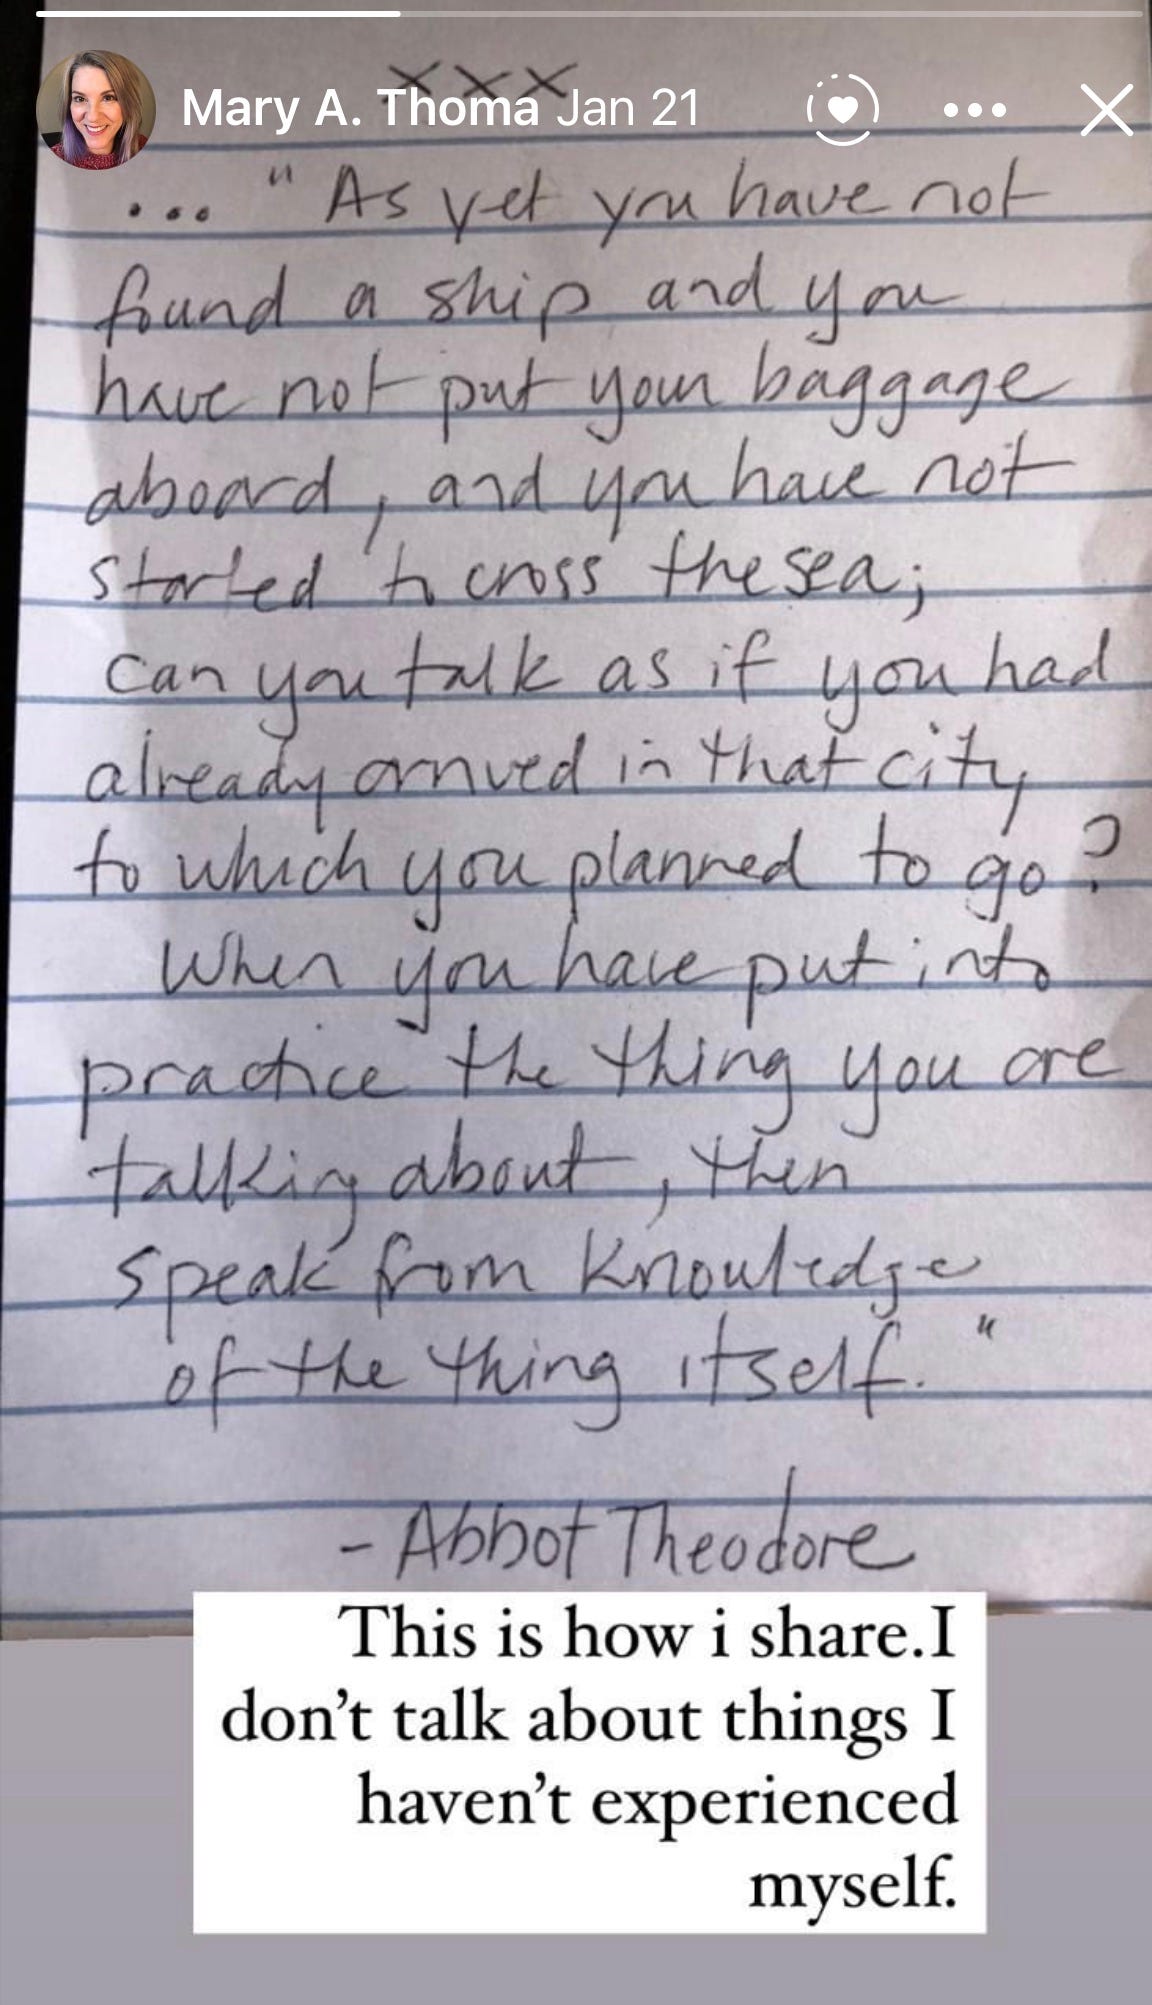 xxx
Mary A. Thoma Jan 21
... "As yet you have not
found a ship and you
have not put your baggage
aboard, and you have not
started to cross the sea;
can you talk as if you had
already arrived in that city
to which you planned to go?
When you have put into
practice the thing you are
talking about, then
speak from knowledge
of the thing itself."
- Abbot Theodore
This is how i share.I
don't talk about things I
haven't experienced
myself.